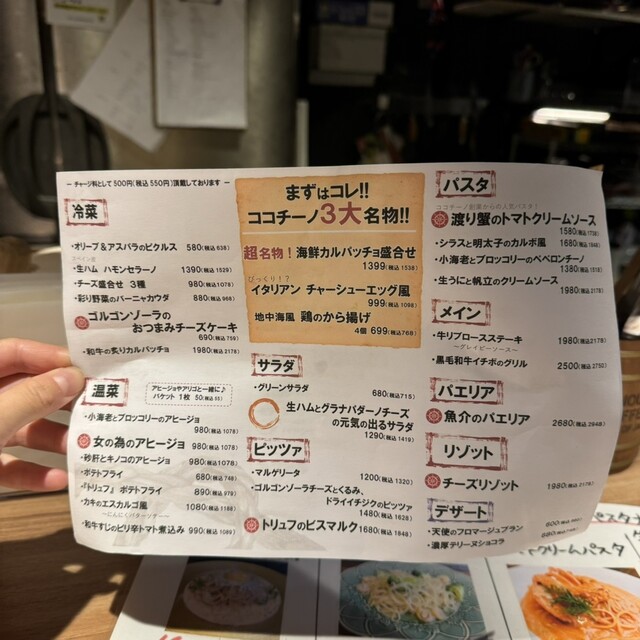 ― チャージ料として500円(税込550円)頂戴しております ―
冷菜
・オリーブ&アスパラのピクルス 580(税込638)
スペイン産
・生ハム ハモンセラーノ 1390(税込1529)
・チーズ盛合せ 3種 980(税込1078)
・彩り野菜のバーニャカウダ 880(税込968)
ゴルゴンゾーラの
おつまみチーズケーキ
690(税込759)
・和牛の炙りカルパッチョ 1980(税込2178)
温菜
アヒージョやアリゴと一緒に♪
バケット 1枚 50(税込55)
・小海老とブロッコリーのアヒージョ
980(税込1078)
女の為のアヒージョ 980(税込1078)
・砂肝とキノコのアヒージョ 980(税込1078)
・ポテトフライ 680(税込748)
・『トリュフ』ポテトフライ 890(税込979)
・カキのエスカルゴ風 1080(税込1188)
～にんにくバターソテー～
・和牛すじのピリ辛トマト煮込み 990(税込1089)
まずはコレ!!
ココチーノ3大名物!!
超名物! 海鮮カルパッチョ盛合せ
1399(税込1538)
びっくり!?
イタリアン チャーシューエッグ風
999(税込1098)
地中海風 鶏のから揚げ
4個 699(税込768)
サラダ
・グリーンサラダ 680(税込715)
生ハムとグラナパダーノチーズ
の元気の出るサラダ
1290(税込1419)
ピッツァ
・マルゲリータ 1200(税込1320)
・ゴルゴンゾーラチーズとくるみ、
ドライイチジクのピッツァ
1480(税込1628)
トリュフのビスマルク 1680(税込1848)
パスタ
ココチーノ創業からの人気パスタ!
渡り蟹のトマトクリームソース
1580(税込1738)
・シラスと明太子のカルボ風 1680(税込1848)
・小海老とブロッコリーのペペロンチーノ
1380(税込1518)
・生うにと帆立のクリームソース
1980(税込2178)
メイン
・牛リブロースステーキ 1980(税込2178)
～グレイビーソース～
・黒毛和牛イチボのグリル 2500(税込2750)
パエリア
魚介のパエリア 2680(税込2948)
リゾット
チーズリゾット 1980(税込2178)
デザート
・天使のフロマージュブラン 600
・濃厚テリーヌショコラ
トクリームパスタ